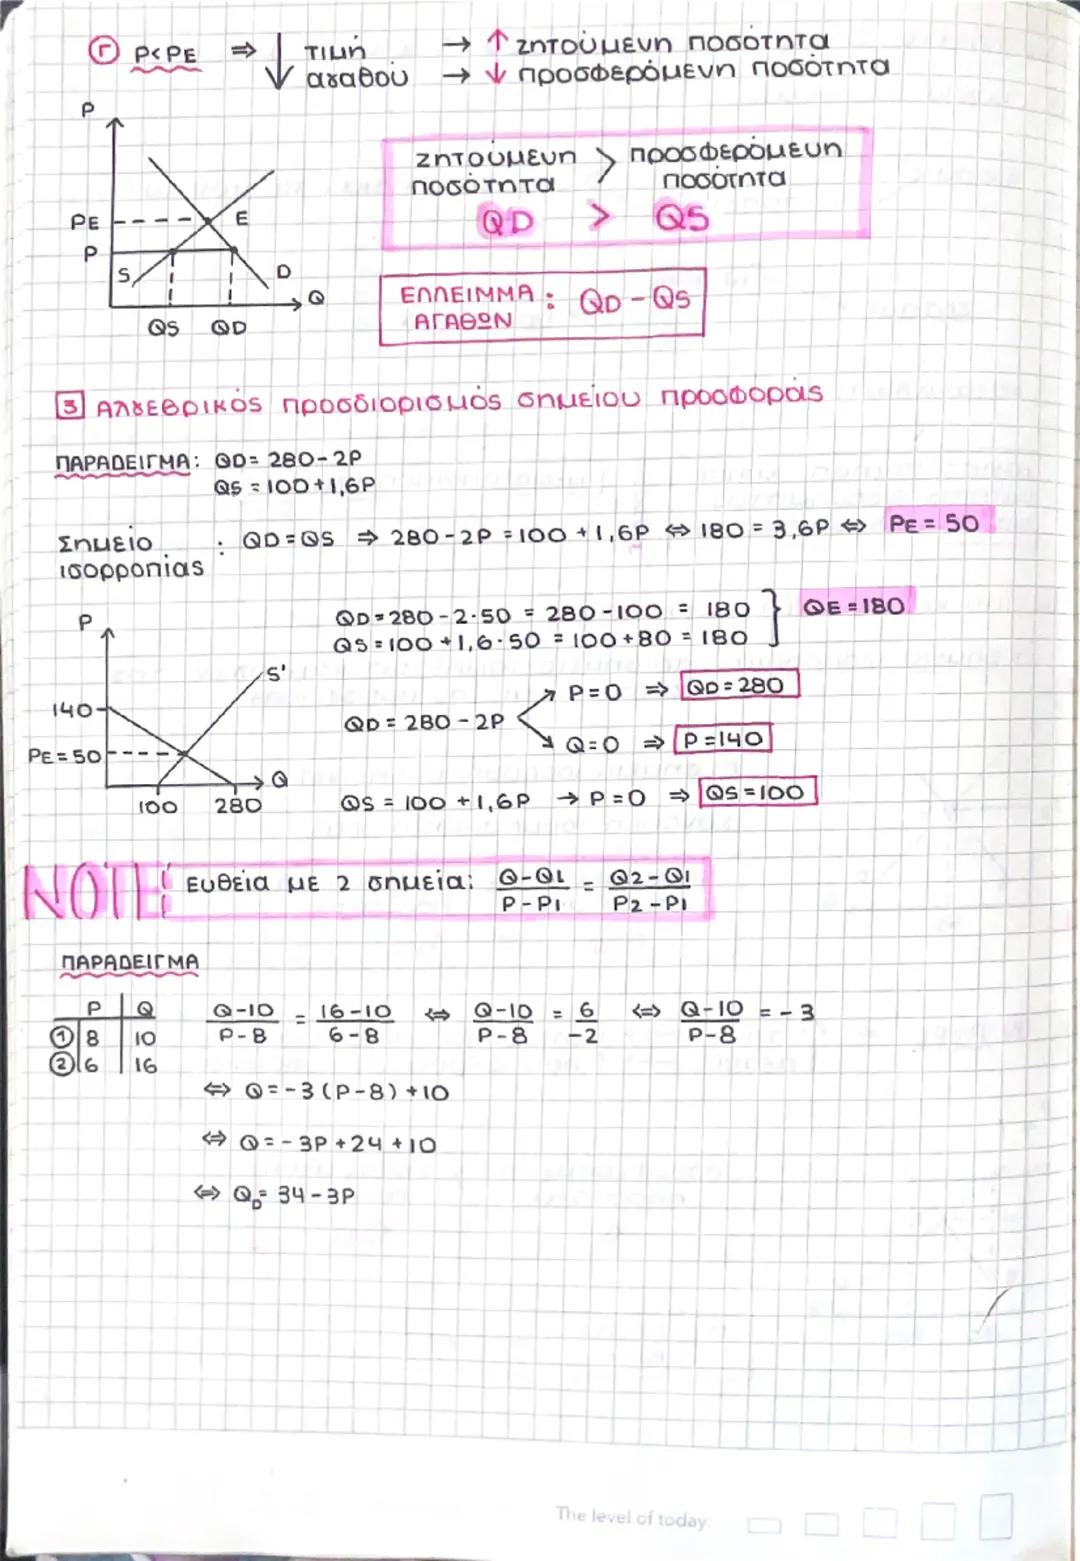 Γ P<PE ⇒ ↓ τιμή αγαθού → ↑ ζητούμενη ποσότητα
→ ↓ προσφερόμενη ποσότητα
P
PE
P
S
E
D
Q
QS QD
ζητούμενη ποσότητα > προσφερόμενη ποσότητα
QD > QS
ΕΛΛΕΙΜΜΑ ΑΓΑΘΩΝ : QD - QS
3 Αλγεβρικός προσδιορισμός σημείου προσφοράς
ΠΑΡΑΔΕΙΓΜΑ: QD = 280-2P
QS = 100+1,6P
Σημείο ισορροπίας : QD=QS ⇒ 280-2P = 100 + 1,6P ⇔ 180 = 3,6P ⇔ PE = 50
QD = 280-2·50 = 280-100 = 180 } QE = 180
QS = 100 + 1,6·50 = 100+80 = 180
P
S'
140
PE = 50
100 280
Q
QD = 280 - 2P
P=0 ⇒ QD = 280
Q=0 ⇒ P=140
QS = 100 + 1,6P → P=0 ⇒ QS=100
NOTE: Ευθεία με 2 σημεία: Q-Q1/P-P1 = Q2-Q1/P2-P1
ΠΑΡΑΔΕΙΓΜΑ
P Q
1 8 10
2 6 16
Q-10/P-8 = 16-10/6-8 ⇔ Q-10/P-8 = 6/-2 ⇔ Q-10/P-8 = -3
⇔ Q = -3(P-8)+10
⇔ Q = -3P+24+10
⇔ QD = 34-3P
The level of today.